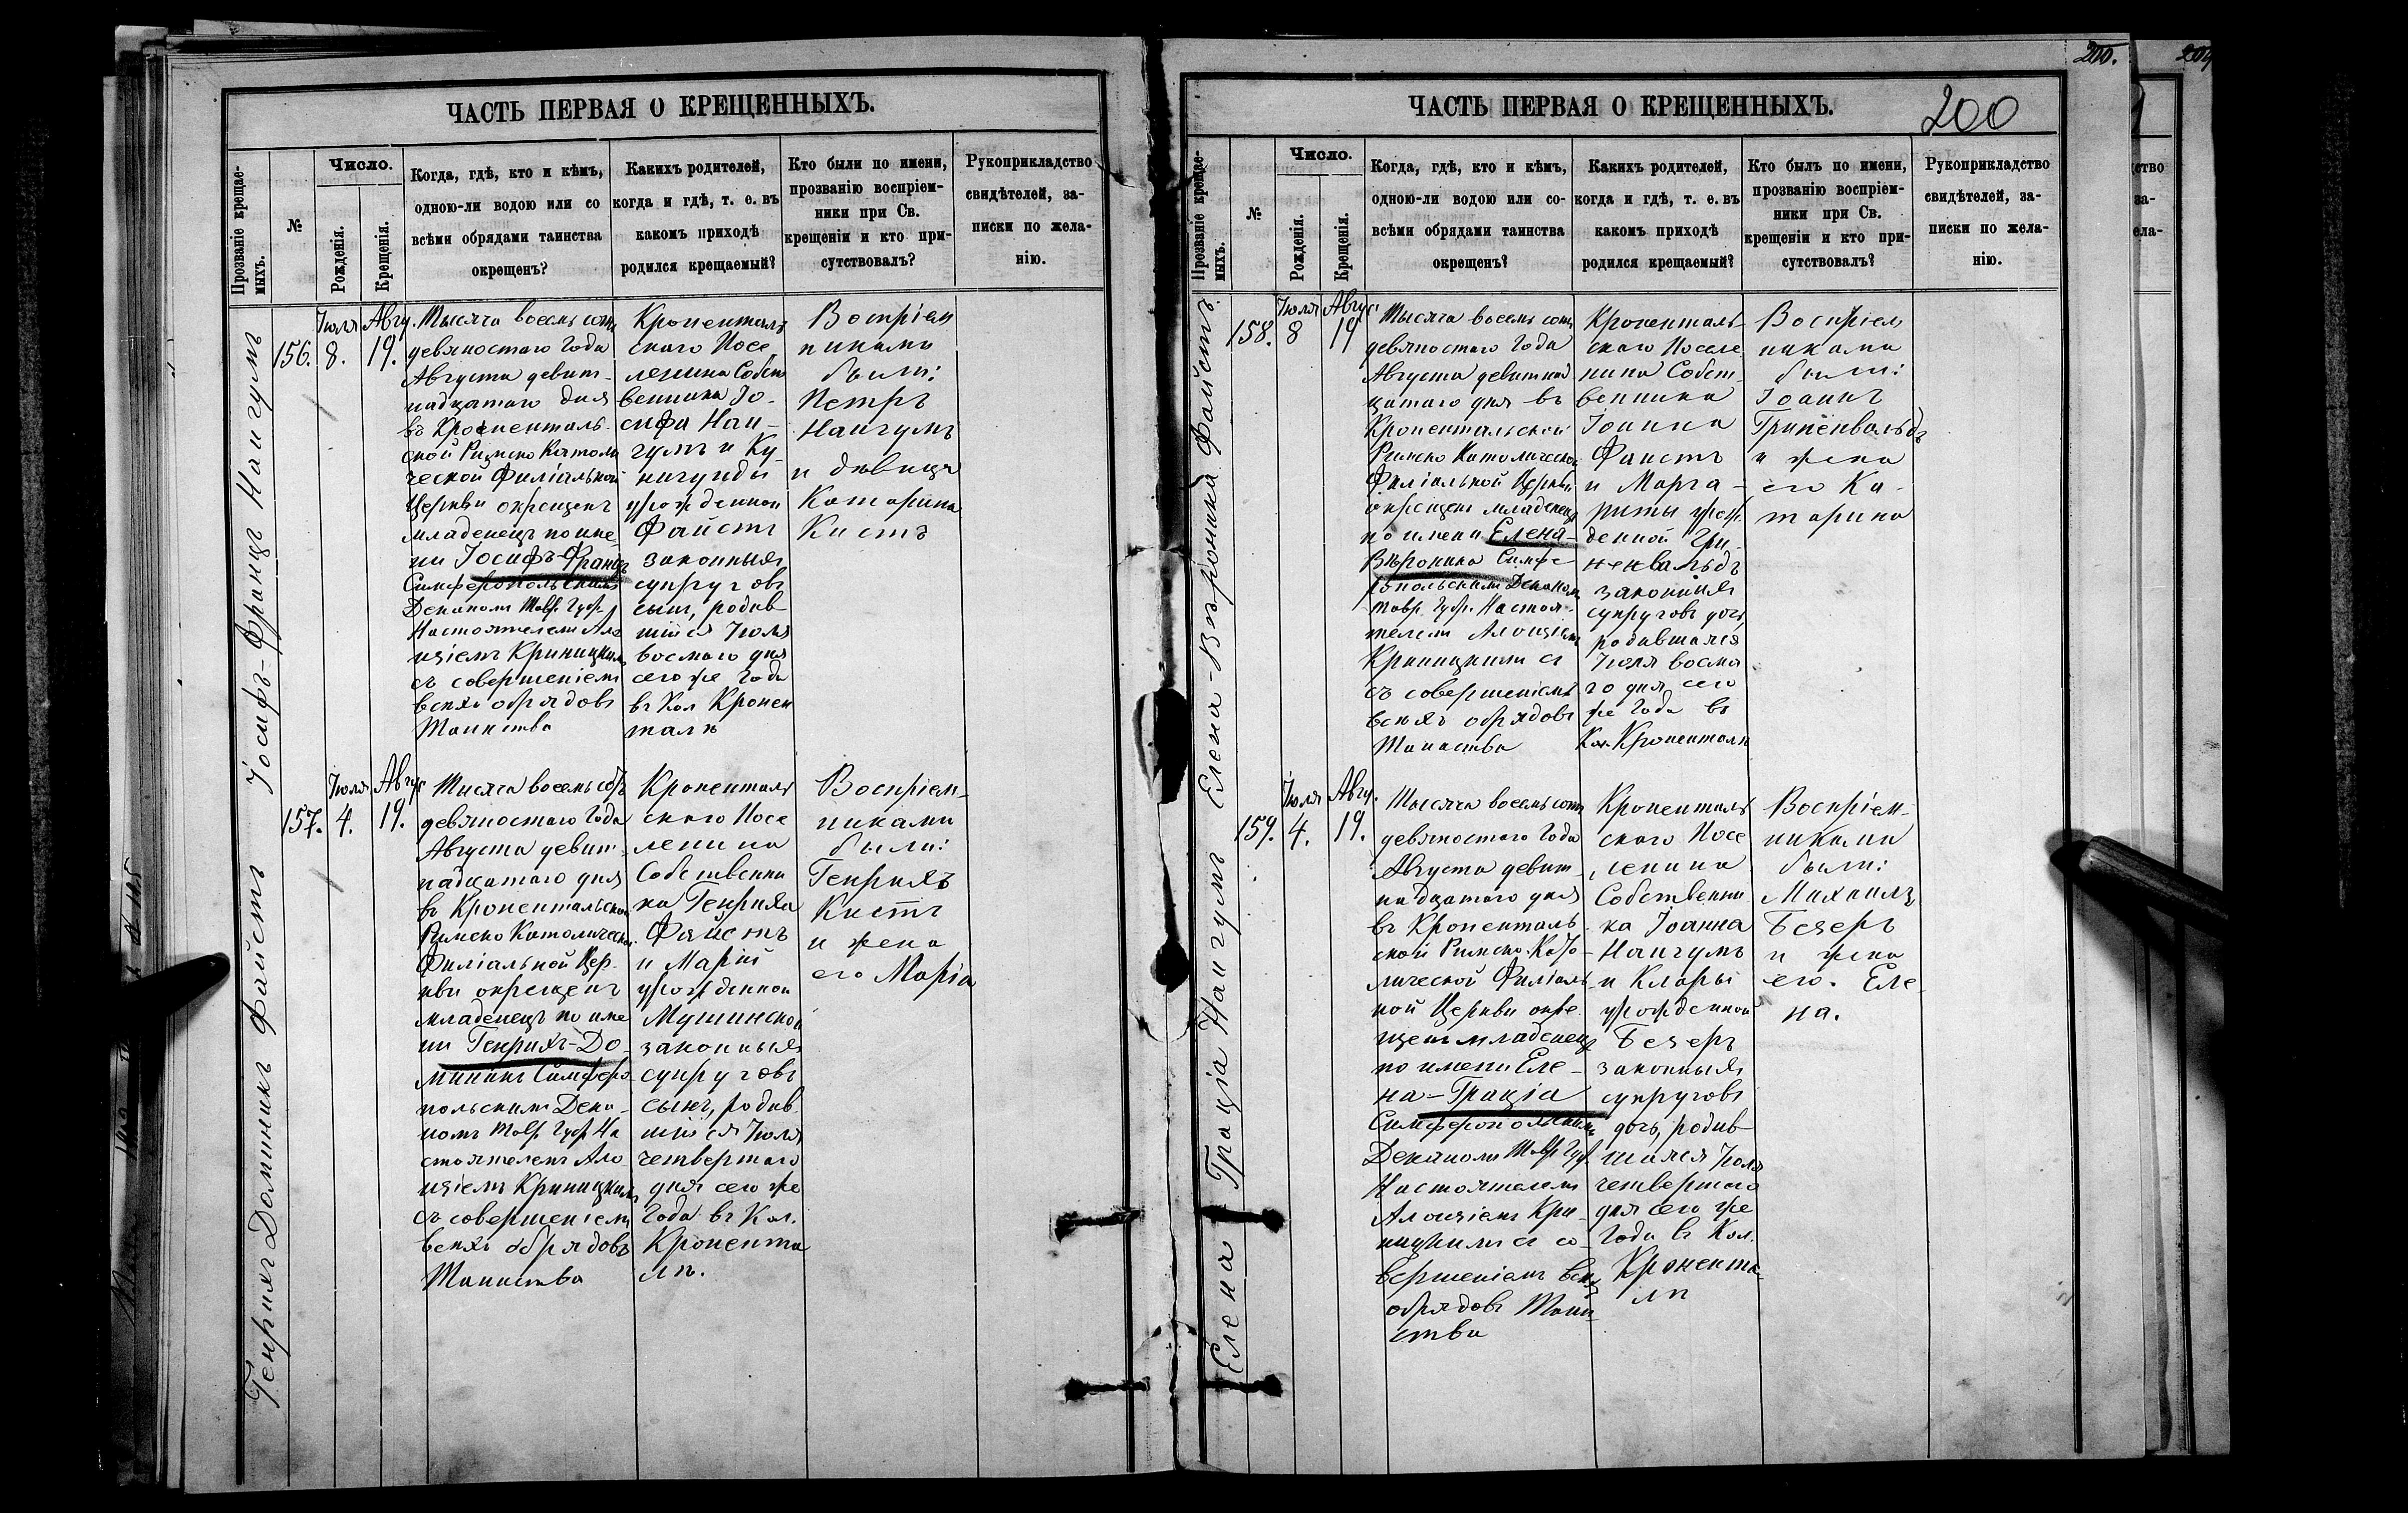 ЧАСТЬ ПЕРВАЯ О КРЕЩЕННЫХЪ.
Прозваніе крещае-
мыхъ.
№
Число.
Рожденія.
Крещенія.
Когда, гдѣ, кто и кѣмъ,
одною-ли водою или со
всѣми обрядами таинства
окрещенъ?
Какихъ родителей,
когда и гдѣ, т. е. въ
какомъ приходѣ
родился крещаемый?
Кто были по имени,
прозванію воспріем-
ники при Св.
крещеніи и кто при-
сутствовалъ?
Рукоприкладство
свидѣтелей, за-
писки по жела-
нію.
Іосифъ-Францъ Нангумъ
156.
Іюля
8.
Авгу.
19.
Тысяча восемь сотъ
девяностаго Года
Августа девят-
надцатаго дня
въ Кроненталь-
ской Римско Католи
ческой Филіальной
Церкви окрещенъ
младенецъ по име-
ни Іосифъ-Францъ
Симферопольскимъ
Деканомъ Тавр. Губр.
Настоятелемъ Ало
изіемъ Криницкимъ
съ совершеніемъ
всѣхъ обрядовъ
Таинства
Кроненталь
скаго Посе
ленина Собст
венника Іо-
сифа Нан-
гумъ и Ку
нигунды
урожденной
Файстъ
законныхъ
супруговъ
сынъ, родив
шійся Іюля
восмаго дня
сего же Года
въ Кол Кронен
талѣ
Воспріем
никами
были:
Петръ
Нангумъ
и дѣвица
Катарина
Кистъ
Генрихъ-Доминикъ Файстъ
157.
Іюля
4.
Авгус
19.
Тысяча восемь сотъ
девяностаго Года
Августа девят-
надцатаго дня
въ Кронентальской
Римско Католической
Филіальной Цер-
кви окрещенъ
младенецъ по име
ни Генрихъ-До-
миникъ Симферо
польскимъ Дека-
номъ Тавр Губр На
стоятелемъ Ало
изіемъ Криницкимъ
съ совершеніемъ
всѣхъ обрядовъ
Таинства
Кроненталь
скаго Посе
ленина
Собственни
ка Генриха
Файстъ
и Маріи
урожденной
Мушинской
законныхъ
супруговъ
сынъ, родив
шійся Іюля
четвертаго
дня сего же
Года въ Кол.
Кронента
лѣ.
Воспріем-
никами
были:
Генрихъ
Кистъ
и жена
его Марія
200.
204
ЧАСТЬ ПЕРВАЯ О КРЕЩЕННЫХЪ.
200
Прозваніе крещае-
мыхъ.
№
Число.
Рожденія.
Крещенія.
Когда, гдѣ, кто и кѣмъ,
одною-ли водою или со-
всѣми обрядами таинства
окрещенъ?
Какихъ родителей,
когда и гдѣ, т. е. въ
какомъ приходѣ
родился крещаемый?
Кто былъ по имени,
прозванію воспріем-
ники при Св.
крещеніи и кто при-
сутствовалъ?
Рукоприкладство
свидѣтелей, за-
писки по жела-
нію.
ство
за-
ела-
Елена-Вѣроника Файстъ.
158.
Іюля
8
Авгус
19
Тысяча восемь сотъ
девяностаго Года
Августа девятнад
цатаго дня въ
Кронентальской
Римско Католической
Филіальной Церкви
окрещенъ младенецъ
по имени Елена-
Вѣроника Симфе-
ропольскимъ Деканомъ
Тавр. Губр. Настоя-
телемъ Алоизіемъ
Криницкимъ съ
съ совершеніемъ
всѣхъ обрядовъ
Таинства
Кроненталь-
скаго Поселе
нина Собст-
венника
Іоанна
Фаистъ
и Марга-
риты урож
денной Гри-
ненвальдъ
законныхъ
супруговъ дочь,
родившаяся
Іюля восма
го дня сего
же Года въ
Кол. Кроненталѣ
Воспріем
никами
были:
Іоаннъ
Гриненвальдъ
и жена
его Ка-
тарина
Елена Грація Нангумъ
159.
Іюля
4.
Авгу.
19.
Тысяча восемь сотъ
девяностаго Года
Августа девят-
надцатаго дня
въ Кроненталь
ской Римско-Като-
лической Филіаль-
ной Церкви окре
щенъ младенецъ
по имени Еле-
на-Грація
Симферопольскимъ
Деканомъ Тавр Губ.
Настоятелемъ
Алоизіемъ Кри-
ницкимъ съ со-
вершеніемъ всѣхъ
обрядовъ Таин-
ства
Кроненталь
скаго Посе
ленина
Собственни
ка Іоанна
Нангумъ
и Клары
урожденной
Бецеръ
законныхъ
супруговъ
дочь, родив-
шаяся Іюля
четвертаго
дня сего же
Года въ Кол.
Кронента-
лѣ
Воспріем-
никами
были:
Михаилъ
Бецеръ
и жена
его. Еле-
на.